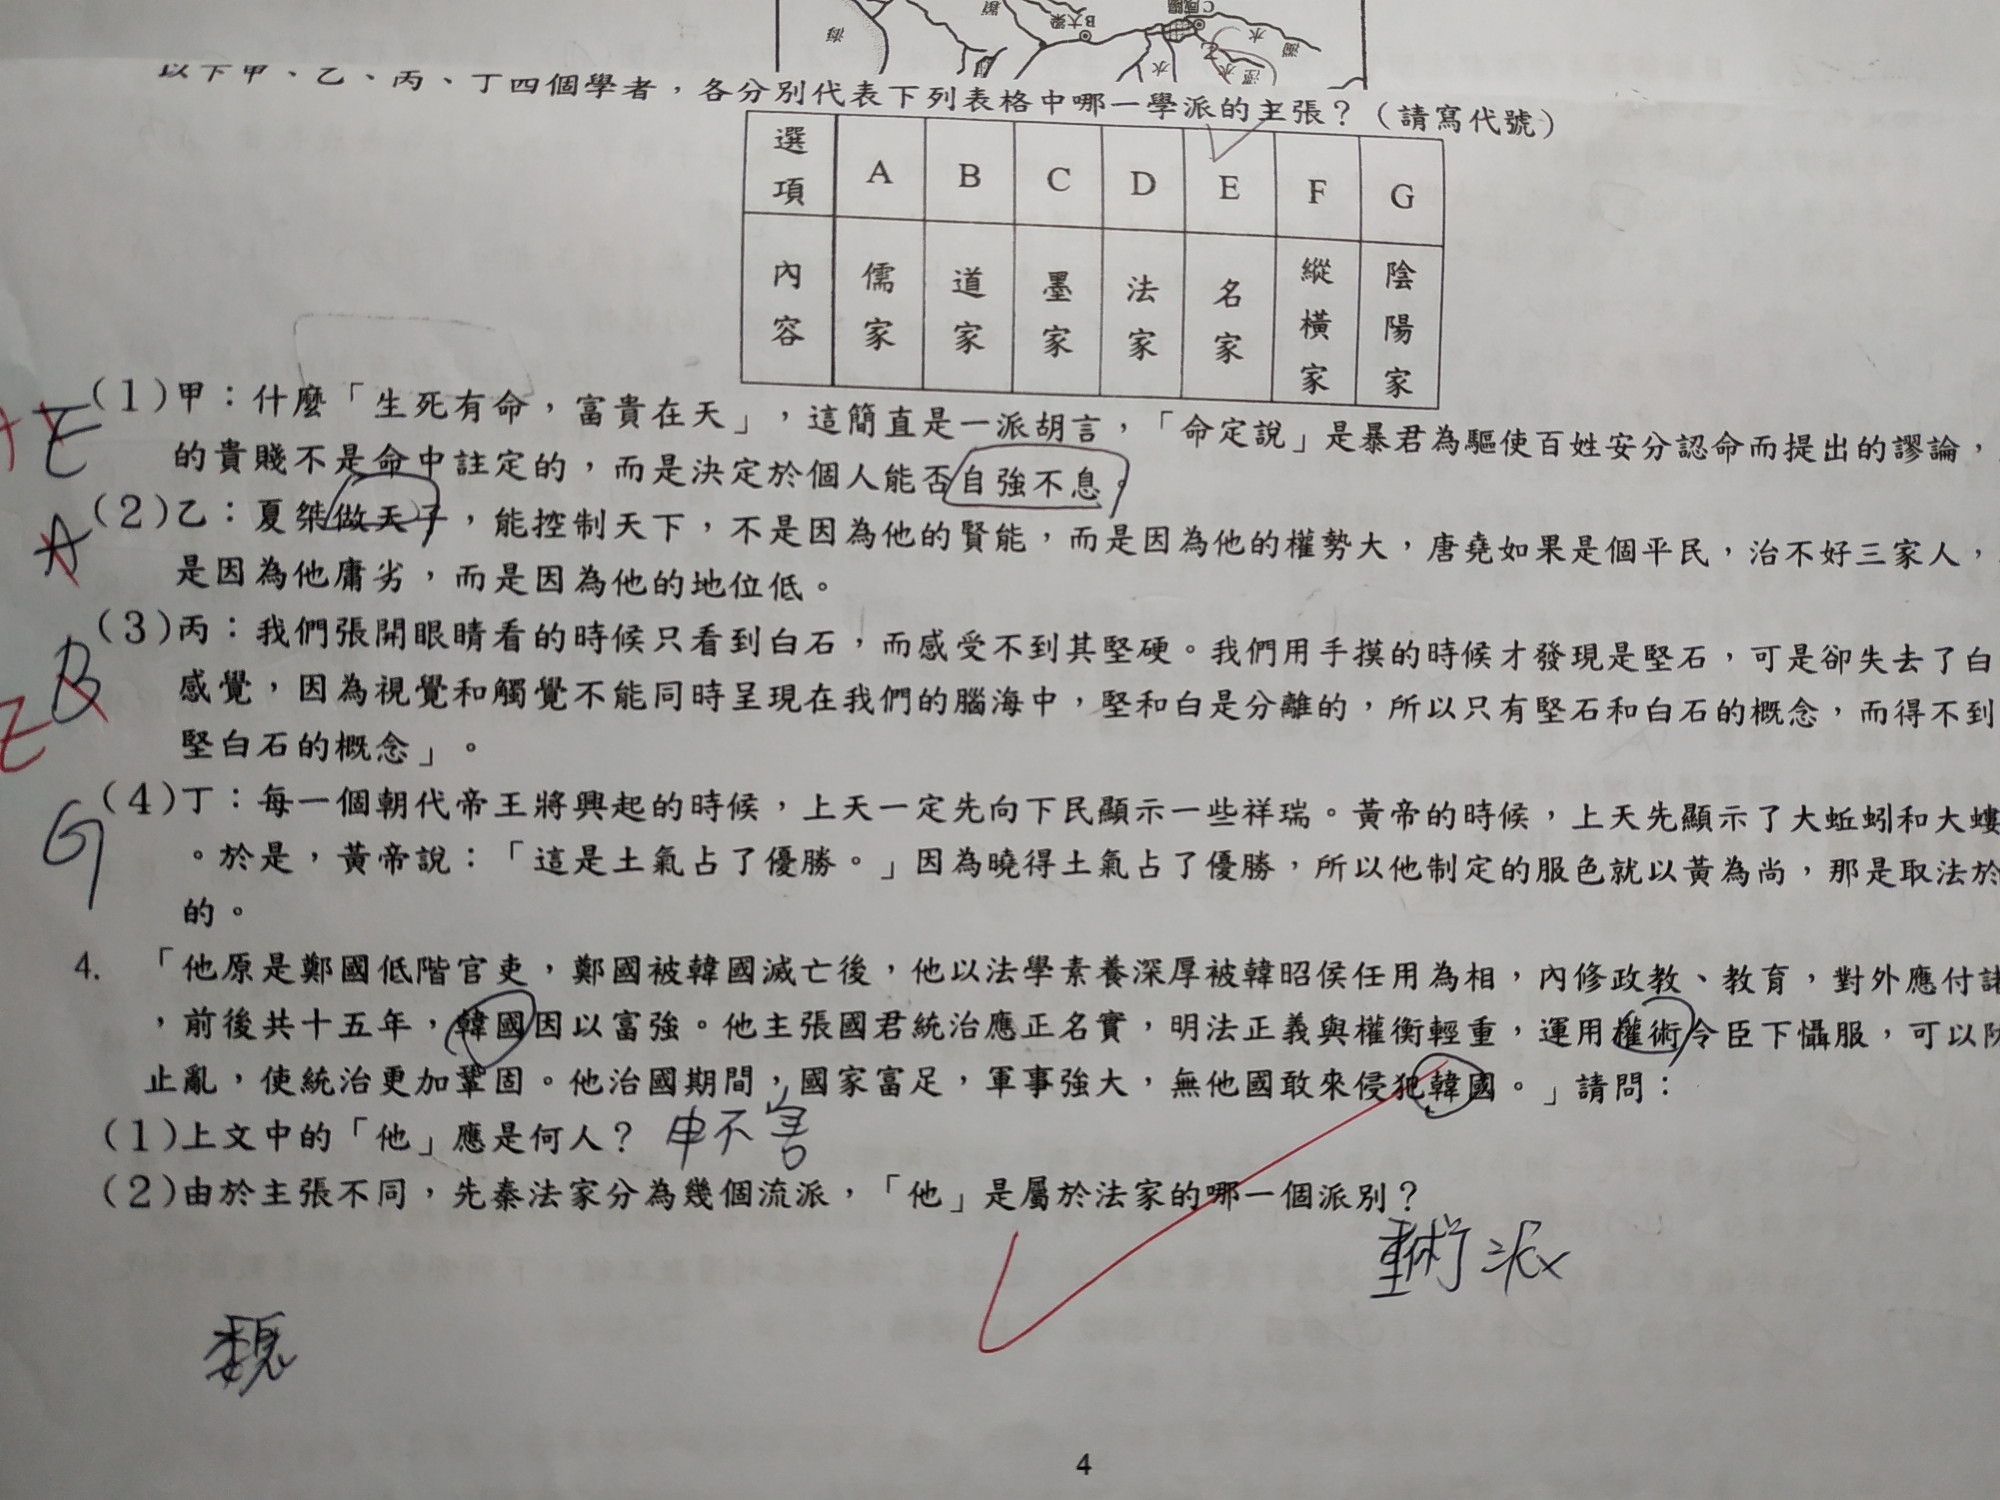 海
B大梁
C咸陽
水
水
涇水
以下甲、乙、丙、丁四個學者，各分別代表下列表格中哪一學派的主張？（請寫代號）
選項 A B C D E F G
內容 儒家 道家 墨家 法家 名家 縱橫家 陰陽家
E (1)甲：什麼「生死有命，富貴在天」，這簡直是一派胡言，「命定說」是暴君為驅使百姓安分認命而提出的謬論，
的貴賤不是命中註定的，而是決定於個人能否自強不息。
A (2)乙：夏桀做天子，能控制天下，不是因為他的賢能，而是因為他的權勢大，唐堯如果是個平民，治不好三家人，
是因為他庸劣，而是因為他的地位低。
B (3)丙：我們張開眼睛看的時候只看到白石，而感受不到其堅硬。我們用手摸的時候才發現是堅石，可是卻失去了白
E 感覺，因為視覺和觸覺不能同時呈現在我們的腦海中，堅和白是分離的，所以只有堅石和白石的概念，而得不到
堅白石的概念」。
G (4)丁：每一個朝代帝王將興起的時候，上天一定先向下民顯示一些祥瑞。黃帝的時候，上天先顯示了大蚯蚓和大螻
。於是，黃帝說：「這是土氣占了優勝。」因為曉得土氣占了優勝，所以他制定的服色就以黃為尚，那是取法於
的。
4. 「他原是鄭國低階官吏，鄭國被韓國滅亡後，他以法學素養深厚被韓昭侯任用為相，內修政教、教育，對外應付諸
，前後共十五年，韓國因以富強。他主張國君統治應正名實，明法正義與權衡輕重，運用權術令臣下懾服，可以防
止亂，使統治更加鞏固。他治國期間，國家富足，軍事強大，無他國敢來侵犯韓國。」請問：
(1)上文中的「他」應是何人？ 申不害
(2)由於主張不同，先秦法家分為幾個流派，「他」是屬於法家的哪一個派別？
重術派
魏
4